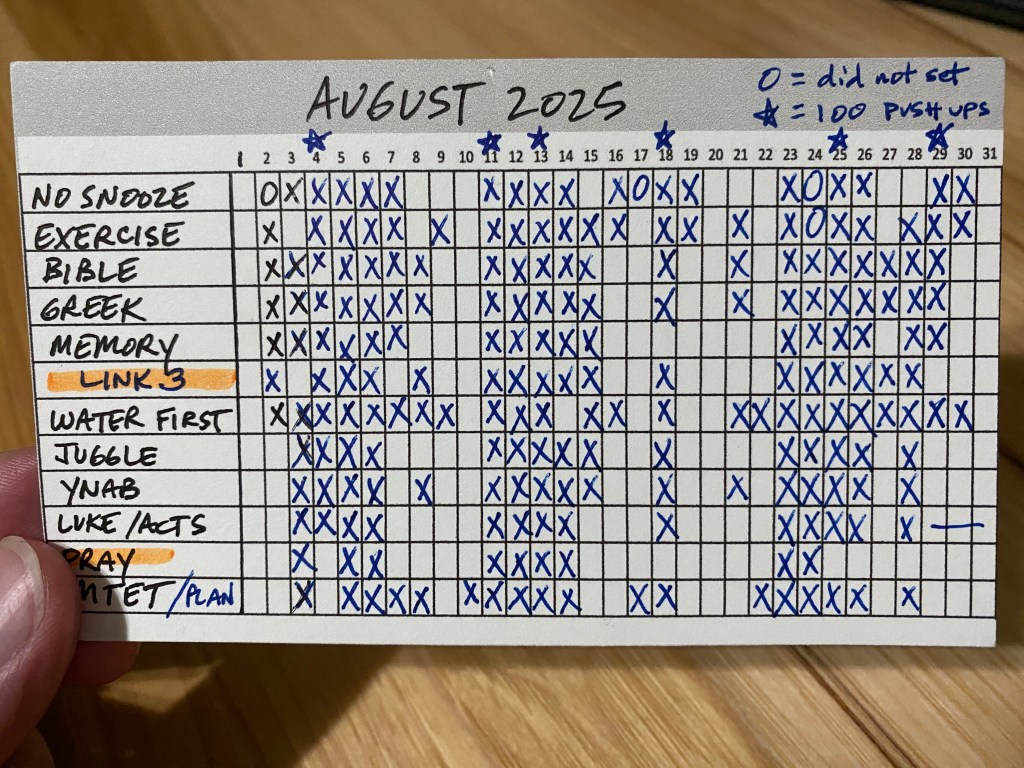 AUGUST 2025
O = did not set
★ = 100 PUSH UPS
★ ★ ★ ★ ★ ★
1 2 3 4 5 6 7 8 9 10 11 12 13 14 15 16 17 18 19 20 21 22 23 24 25 26 27 28 29 30 31
NO SNOOZE O X X X X X X X X X X O X X X O X X X X
EXERCISE X X X X X X X X X X X X X X X X O X X X X X
BIBLE X X X X X X X X X X X X X X X X X X X X X
GREEK X X X X X X X X X X X X X X X X X X X X X
MEMORY X X X X X X X X X X X X X X X X X
LINK 3 X X X X X X X X X X X X X X X X X
WATER FIRST X X X X X X X X X X X X X X X X X X X X X X X X
JUGGLE X X X X X X X X X X X X X X X
YNAB X X X X X X X X X X X X X X X X X
LUKE/ACTS X X X X X X X X X X X X X X —
PRAY X X X X X X X X X
/PLAN X X X X X X X X X X X X X X X X X X